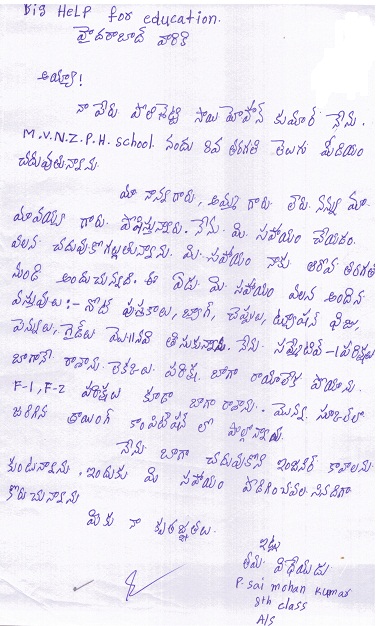 Big HeLP for education.
హైదరాబాద్ వారికి
అయ్యా!
నా పేరు పోలిశెట్టి సాయి మోహన్ కుమార్ నేను.
M.V.N.Z.P.H. school నందు 8వ తరగతి తెలుగు మీడియం
చదువుతున్నాను
మా నాన్నగారు, అమ్మ గారు లేరు నన్ను మా
మావయ్య గారు పోషిస్తున్నారు. నేను మీ సహాయం చేయడం
వలన చదువుకోగల్గుతున్నాను. మీ సహాయం నాకు ఆరోవ తరగతి
నుండి అందుచున్నది. ఈ ఏడు మీ సహాయం వలన అందిన
వస్తువులు:- నోట్ పుస్తకాలు, బ్యాగ్, చెప్పులు, ట్యూషన్ ఫీజు,
పెన్నులు, గైడ్‌లు మొ॥నవి తీసుకున్నాను. నేను సమ్మేటివ్-1 పరీక్షలు
బాగానే రాశాను. లెక్కలు పరీక్ష బాగా రాయలేక పోయాను.
F-1, F-2 పరీక్షలు కూడా బాగా రాశాను. మొన్న స్కూల్‌లో
జరిగిన డ్రాయింగ్ కాంపిటీషన్ లో పాల్గొన్నాను.
నేను బాగా చదువుకొని ఇంజనీర్ కావాలను
కుంటున్నాను. ఇందుకు మీ సహాయం
కోరుచున్నాను
మీకు నా కృతజ్ఞతలు.
ఇట్లు
తమ విధేయుడు
P. sai mohan kumar
8th class
A/S